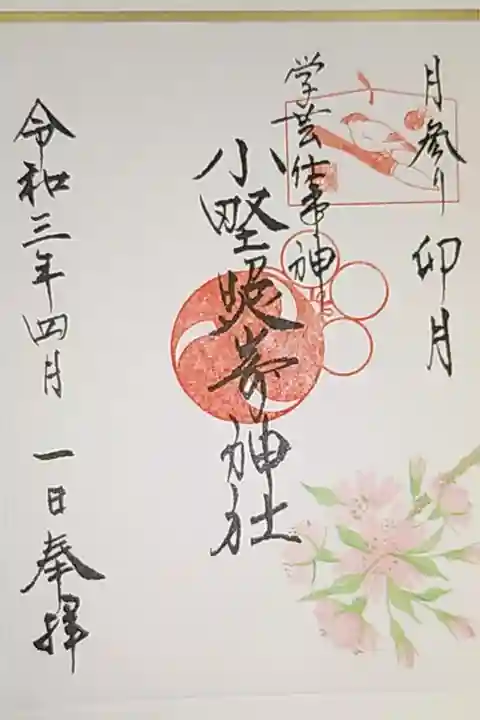 月参り 卯月
学芸仕事神
小野照崎神社
令和三年四月 一日奉拝